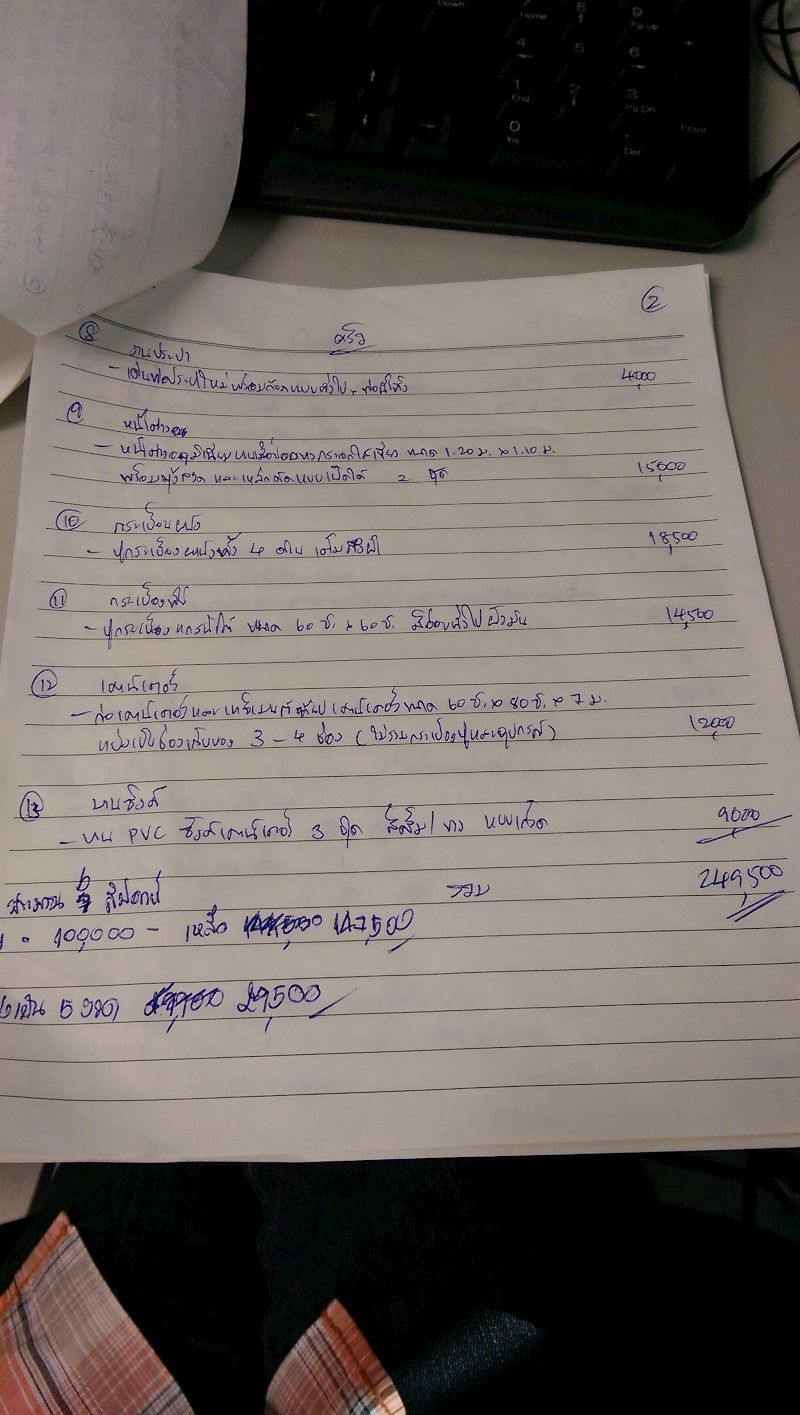 ②
ครัว
⑧ งานประปา
- เดินท่อประปาใหม่พร้อมก๊อกแบบทั่วไป, ท่อน้ำทิ้ง 4,000
⑨ หน้าต่าง
- หน้าต่างอลูมิเนียม กระจกใสเขียว ขนาด 1.20 ม. x 1.10 ม.
พร้อมมุ้งลวด และเหล็กดัดแบบเปิดได้ 2 ชุด 15,000
⑩ กระเบื้องผนัง
- ปูกระเบื้องผนังทั้ง 4 ด้าน 18,500
⑪ กระเบื้องพื้น
- ปูกระเบื้องแกรนิตโต้ ขนาด 60 ซ. x 60 ซ. สีอ่อนทั่วไป ผิวมัน 14,500
⑫ เคาน์เตอร์
- ก่อเคาน์เตอร์และเทซีเมนต์ เคาน์เตอร์ขนาด 60 ซ. x 80 ซ. x 7 ม.
แบ่งเป็นช่องเก็บของ 3 - 4 ช่อง (ไม่รวมกระเบื้องปูและอุปกรณ์) 12,000
⑬ บานซิงค์
- บาน PVC ซิงค์เคาน์เตอร์ 3 ชุด สีส้ม/ขาว 9,000
6 สัปดาห์ รวม 249,500
100,000 - เหลือ 147,500
เป็น 5 งวด 29,500